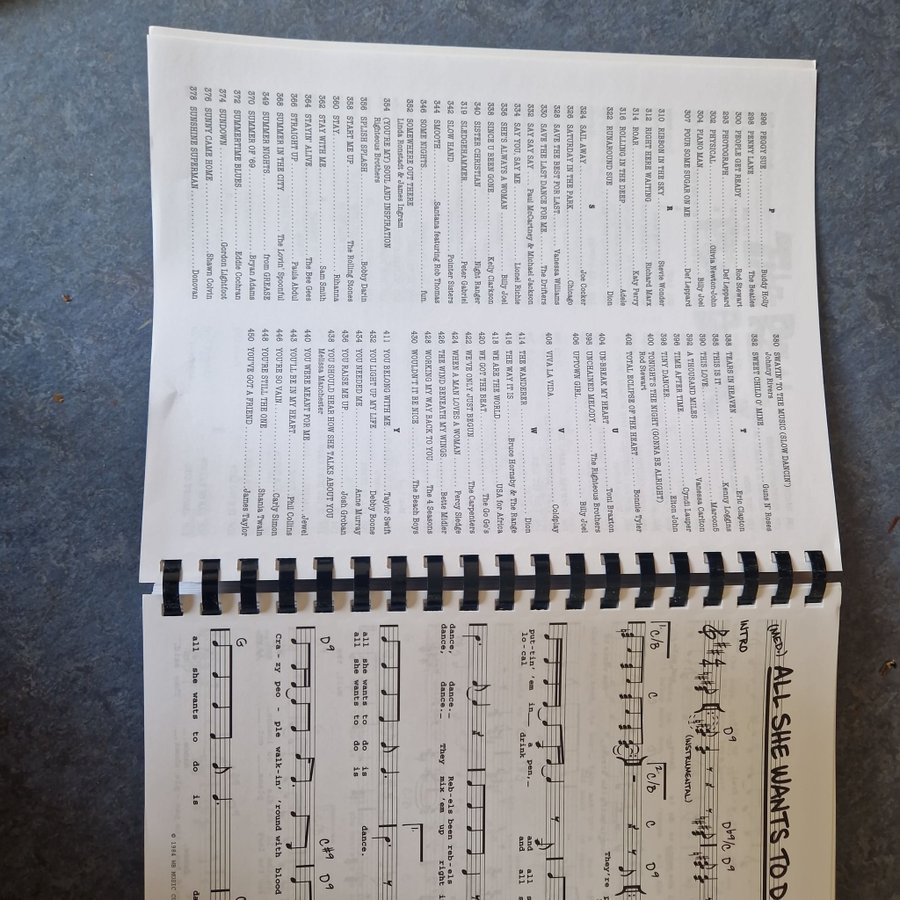 P
296 PEGGY SUE Buddy Holly
298 PENNY LANE The Beatles
300 PEOPLE GET READY Rod Stewart
293 PHOTOGRAPH Def Leppard
302 PHYSICAL Olivia Newton-John
304 PIANO MAN Billy Joel
307 POUR SOME SUGAR ON ME Def Leppard
R
310 RIBBON IN THE SKY Stevie Wonder
312 RIGHT HERE WAITING Richard Marx
314 ROAR Katy Perry
316 ROLLING IN THE DEEP Adele
322 RUNAROUND SUE Dion
S
324 SAIL AWAY Joe Cocker
326 SATURDAY IN THE PARK Chicago
328 SAVE THE BEST FOR LAST Vanessa Williams
330 SAVE THE LAST DANCE FOR ME The Drifters
332 SAY SAY SAY Paul McCartney & Michael Jackson
334 SAY YOU, SAY ME Lionel Richie
335 SHE'S ALWAYS A WOMAN Billy Joel
338 SINCE U BEEN GONE Kelly Clarkson
340 SISTER CHRISTIAN Night Ranger
319 SLEDGEHAMMER Peter Gabriel
342 SLOW HAND Pointer Sisters
344 SMOOTH Santana featuring Rob Thomas
346 SOME NIGHTS fun.
352 SOMEWHERE OUT THERE
Linda Ronstadt & James Ingram
354 (YOU'RE MY) SOUL AND INSPIRATION
Righteous Brothers
356 SPLISH SPLASH Bobby Darin
358 START ME UP The Rolling Stones
360 STAY Rihanna
362 STAY WITH ME Sam Smith
364 STAYIN' ALIVE The Bee Gees
366 STRAIGHT UP Paula Abdul
368 SUMMER IN THE CITY The Lovin' Spoonful
349 SUMMER NIGHTS from GREASE
370 SUMMER OF '69 Bryan Adams
372 SUMMERTIME BLUES Eddie Cochran
374 SUNDOWN Gordon Lightfoot
376 SUNNY CAME HOME Shawn Colvin
378 SUNSHINE SUPERMAN Donovan
380 SWAYIN' TO THE MUSIC (SLOW DANCIN')
Johnny Rivers
382 SWEET CHILD O' MINE Guns N' Roses
T
385 TEARS IN HEAVEN Eric Clapton
388 THIS IS IT Kenny Loggins
390 THIS LOVE Maroon5
392 A THOUSAND MILES Vanessa Carlton
396 TIME AFTER TIME Cyndi Lauper
398 TINY DANCER Elton John
400 TONIGHT'S THE NIGHT (GONNA BE ALRIGHT)
Rod Stewart
402 TOTAL ECLIPSE OF THE HEART Bonnie Tyler
U
404 UN-BREAK MY HEART Toni Braxton
395 UNCHAINED MELODY The Righteous Brothers
406 UPTOWN GIRL Billy Joel
V
408 VIVA LA VIDA Coldplay
W
414 THE WANDERER Dion
416 THE WAY IT IS Bruce Hornsby & The Range
418 WE ARE THE WORLD USA for Africa
420 WE GOT THE BEAT The Go Go's
422 WE'VE ONLY JUST BEGUN The Carpenters
424 WHEN A MAN LOVES A WOMAN Percy Sledge
426 THE WIND BENEATH MY WINGS Bette Midler
428 WORKING MY WAY BACK TO YOU The 4 Seasons
430 WOULDN'T IT BE NICE The Beach Boys
Y
411 YOU BELONG WITH ME Taylor Swift
432 YOU LIGHT UP MY LIFE Debby Boone
434 YOU NEEDED ME Anne Murray
436 YOU RAISE ME UP Josh Groban
438 YOU SHOULD HEAR HOW SHE TALKS ABOUT YOU
Melissa Manchester
440 YOU WERE MEANT FOR ME Jewel
443 YOU'LL BE IN MY HEART Phil Collins
446 YOU'RE SO VAIN Carly Simon
448 YOU'RE STILL THE ONE Shania Twain
450 YOU'VE GOT A FRIEND James Taylor
(MED.) ALL SHE WANTS TO D
INTRO
D9 Db9/C D9
(INSTRUMENTAL)
1 C/B C 2 C/B C D9
They're p
put-tin' 'em in a pen, and all s
lo-cal drink and all s
dance, dance. Reb-els been reb-els
dance, dance. They mix 'em up right i
1.
all she wants to do is dance.
all she wants to do is
D9 C#9 D9
Cra-zy peo-ple walk-in' 'round with blood
G
all she wants to do is da
© 1984 WB MUSIC CO